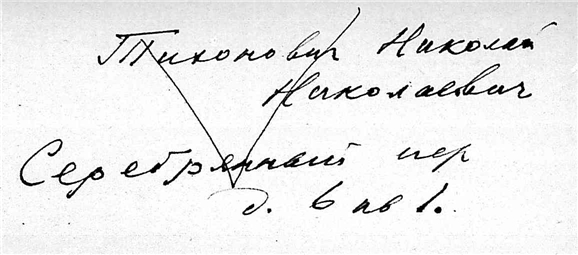 Тихонович Николай
Николаевич
Серебрянный пер
д. 6 кв 1.